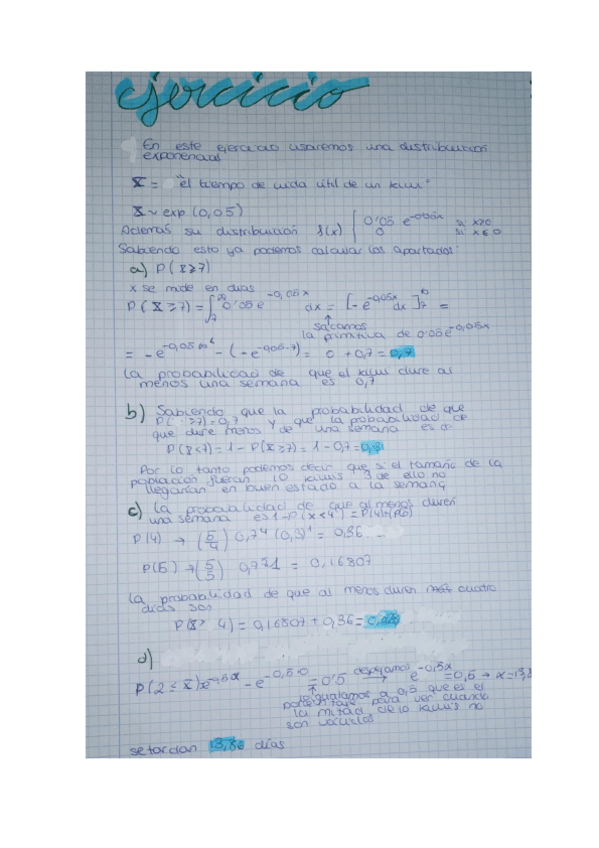 ejercicio
En este ejercicio usaremos una distribucion
exponencial
X = "el tiempo de vida útil de un kiwi"
X ~ exp (0,05)
Además su distribución f(x) { 0'05 e^-0'05x si x>0
0 si x≤0
Sabiendo esto ya podemos calcular los apartados:
a) P(X≥7)
x se mide en días
P(X≥7) = ∫ 0'05 e^-0,05x dx = [-e^-0,05x dx]
sacamos
la primitiva de 0'05e^-0,05x
= -e^-0,05·∞ - (-e^-0,05·7) = 0 + 0,7 = 0,7
La probabilidad de que el kiwi dure al
menos una semana es 0,7
b) Sabiendo que la probabilidad de que
P( ≥7)=0,7 y que la probabilidad de
que dure menos de una semana es de
P(X<7) = 1 - P(X≥7) = 1 - 0,7 =
Por lo tanto podemos decir que si el tamaño de la
población fueran 10 kiwis 3 de ello no
llegarían en buen estado a la semana
c) La probabilidad de que al menos duren
una semana es 1-P(X<4) = P(4)+P(5)
P(4) → (5/4) 0,7^4 (0,3)^1 = 0,36
P(5) → 1 = 0,16807
La probabilidad de que al menos duren cuatro
días son
P(X> 4) = 0,16807 + 0,36 =
d)
P(2 ≤ X) - e^-0,5·0 = 0'5 despejamos → e = 0,5 → x=13,8
igualamos a 0,5 que es el
para ver cuando
la mitad de lo kiwis no
son
se tardan 13,86 días